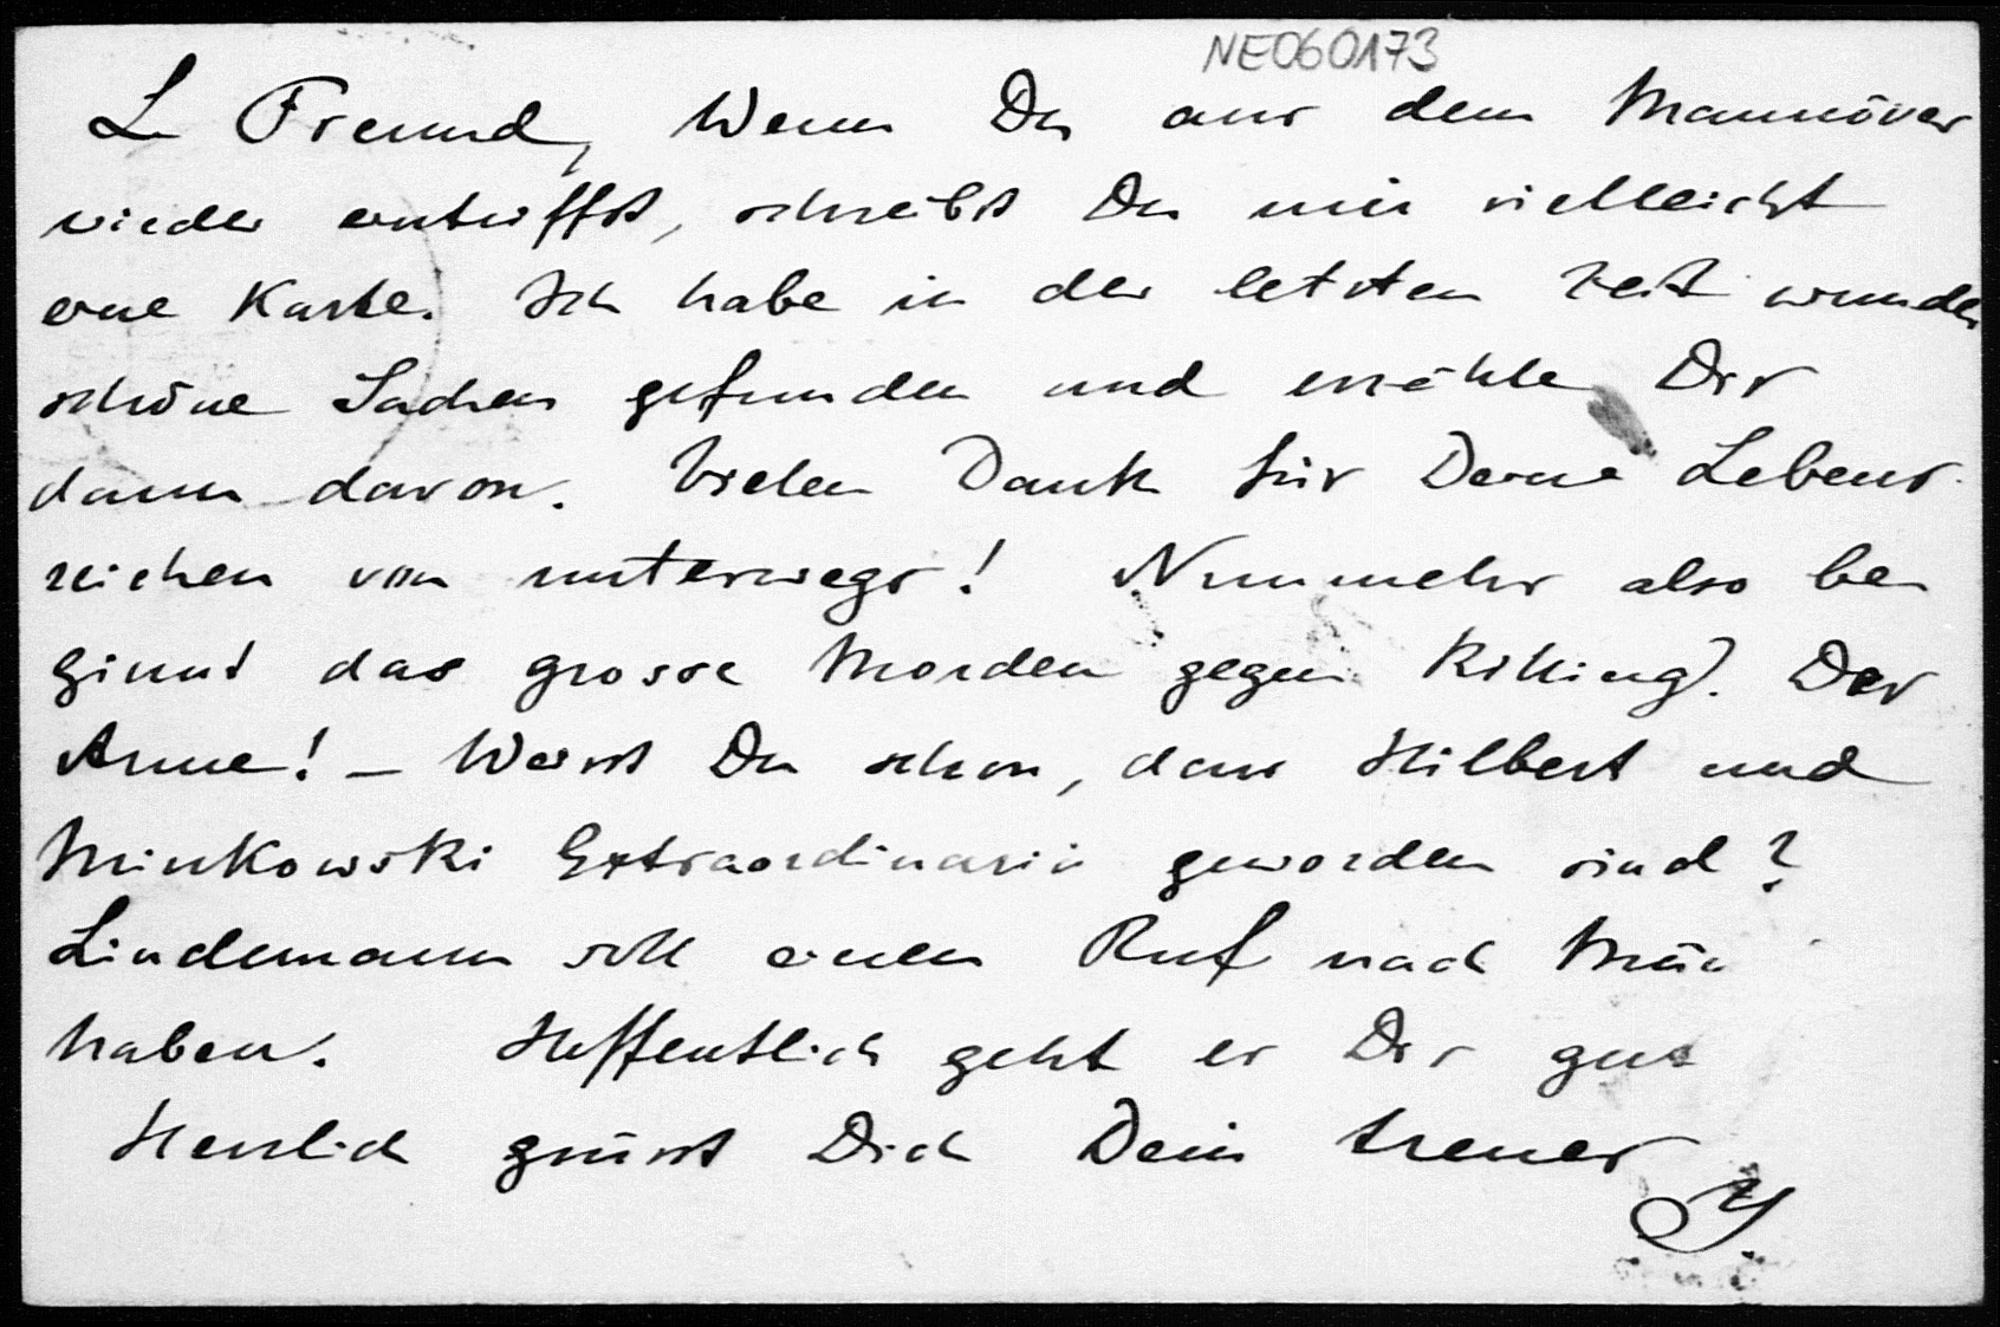 NE060173
L Freund, Wenn Du aus dem Mannöver
wieder eintriffst, schreibst Du mir vielleicht
eine Karte. Ich habe in der letzten Zeit wunder
schöne Sachen gefunden und erzähle Dir
dann davon. Vielen Dank für Deine Lebens-
zeichen von unterwegs! Nunmehr also be
ginnt das grosse Morden gegen Killing. Der
Arme! – Weisst Du schon, dass Hilbert und
Minkowski Extraordinarii geworden sind?
Lindemann soll einen Ruf nach
haben. Hoffentlich geht es Dir gut
Herzlich grüsst Dich Dein treuer